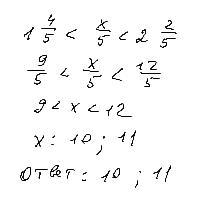 1 4/5 < x/5 < 2 2/5
9/5 < x/5 < 12/5
9 < x < 12
x = 10 ; 11
Ответ: 10 ; 11